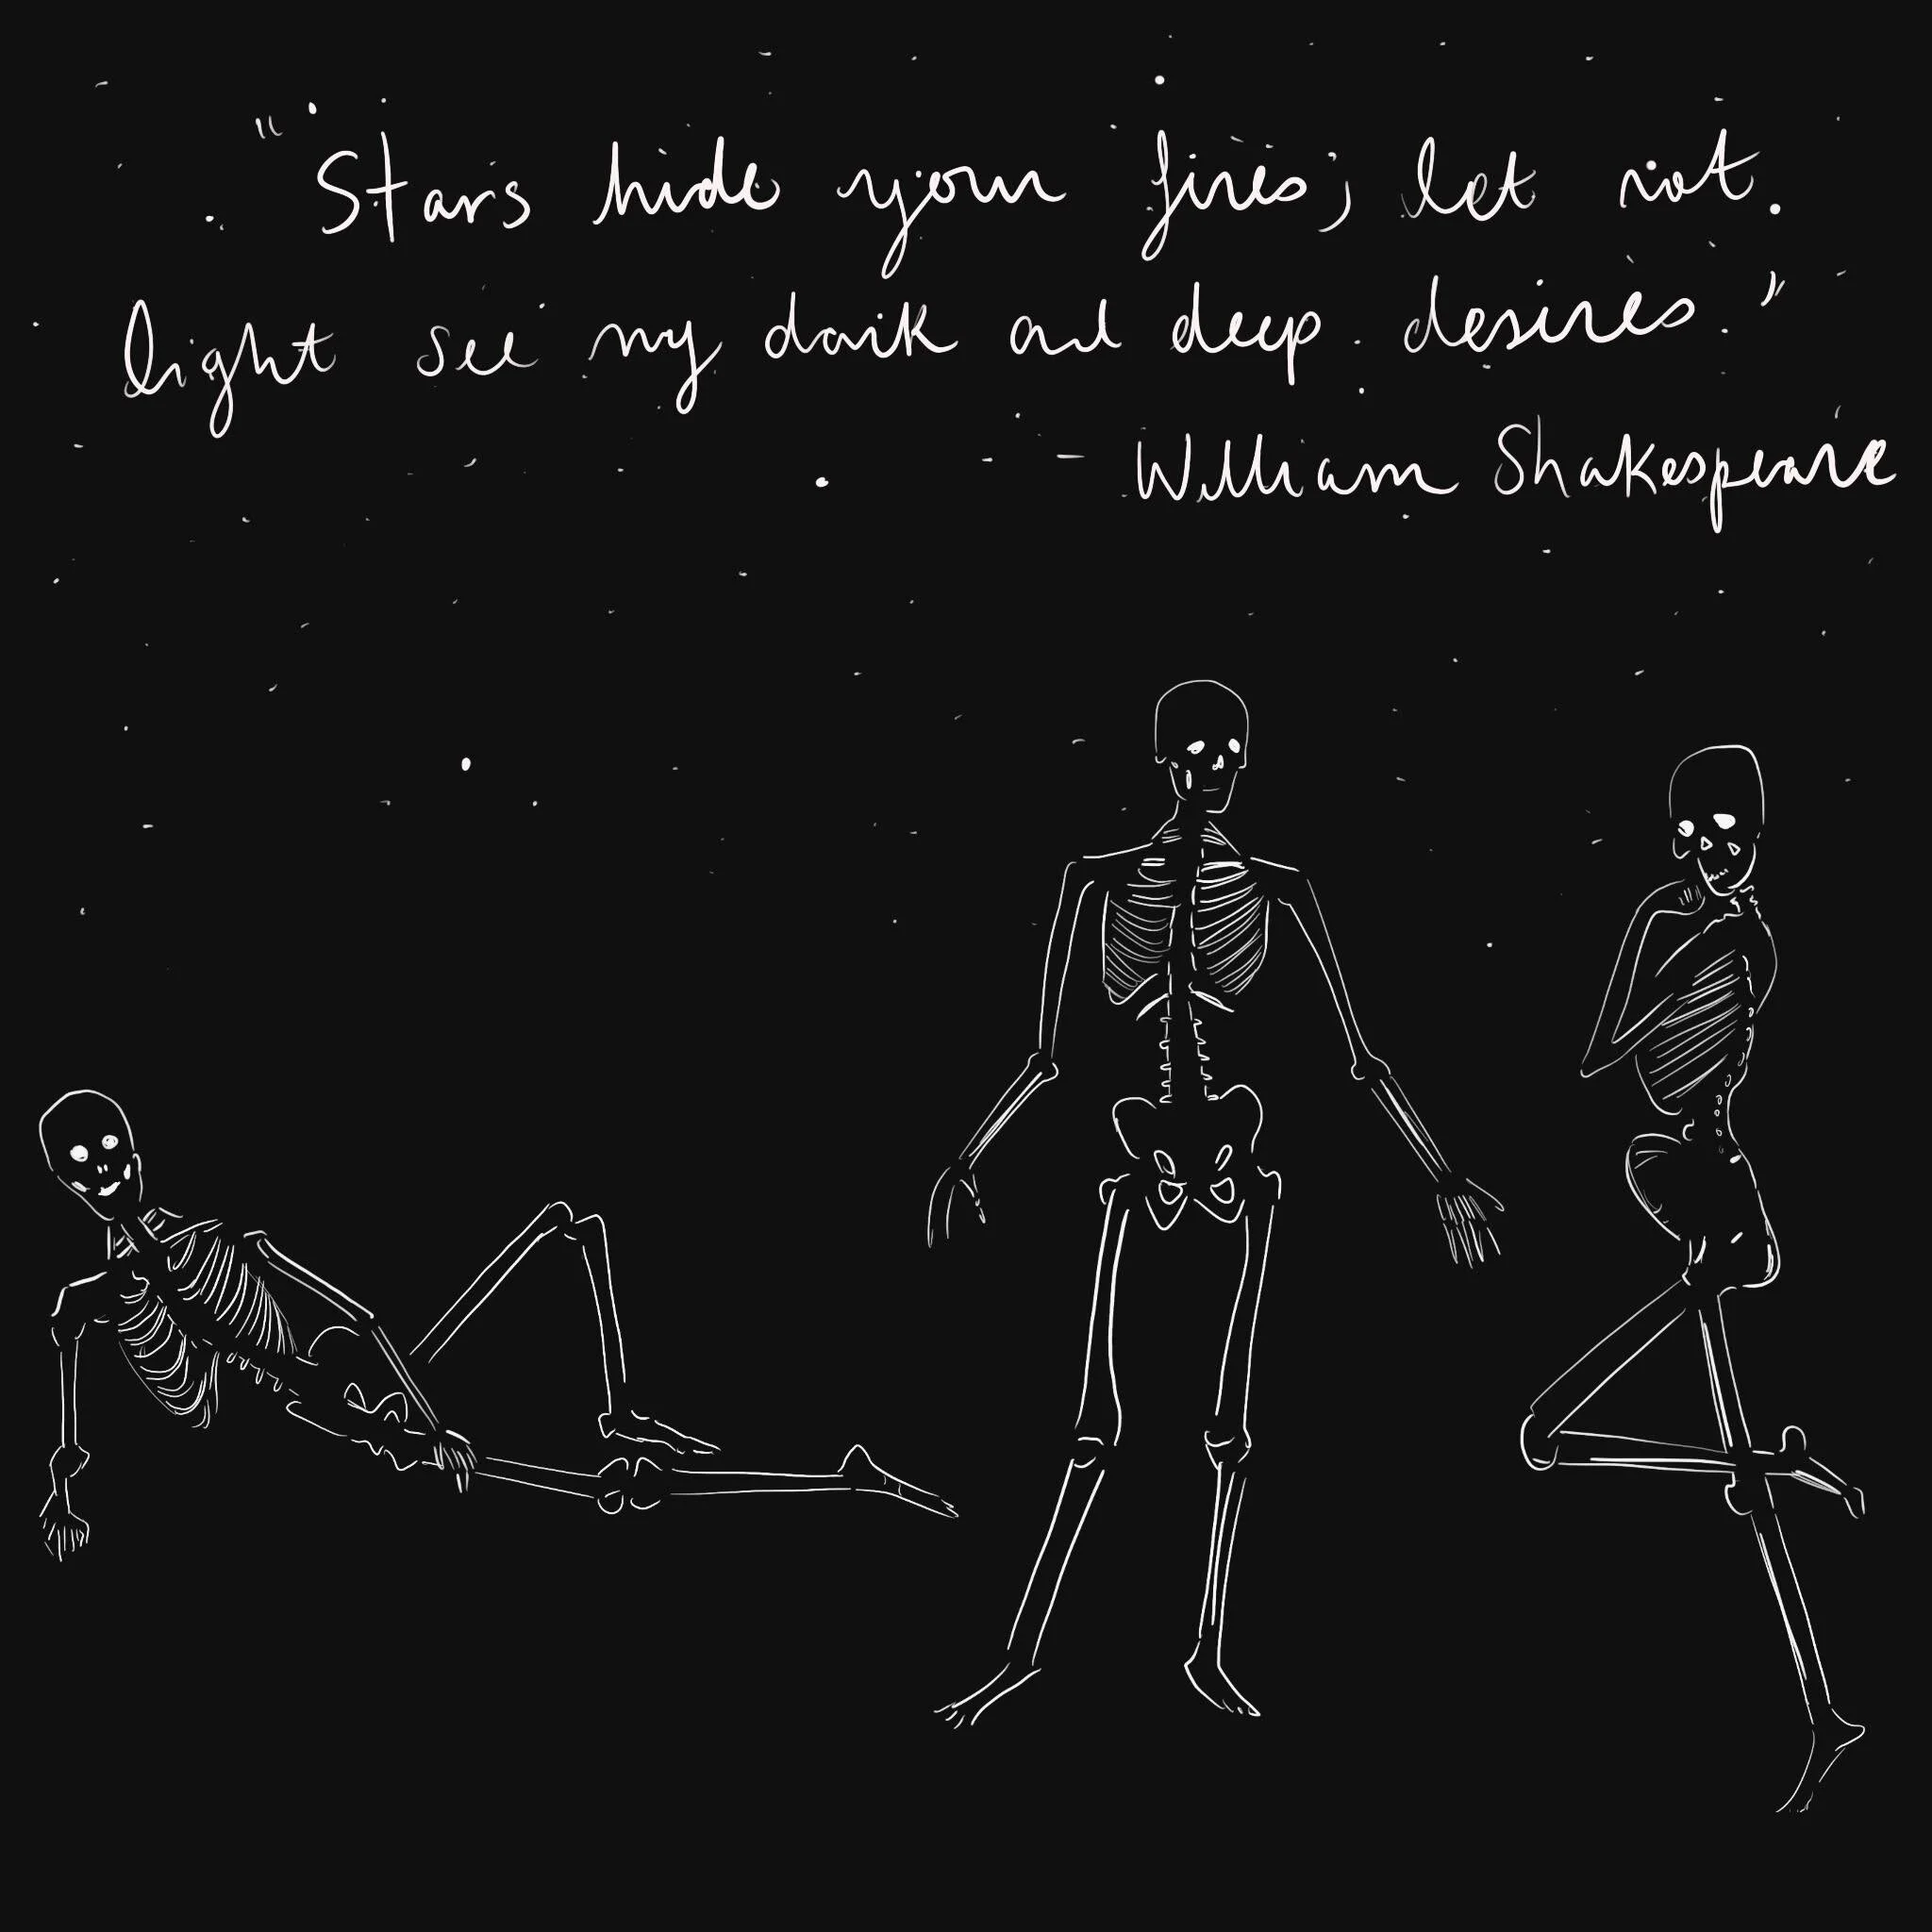 "Stars hide your fires; let not
light see my dark and deep desires."
- William Shakespeare